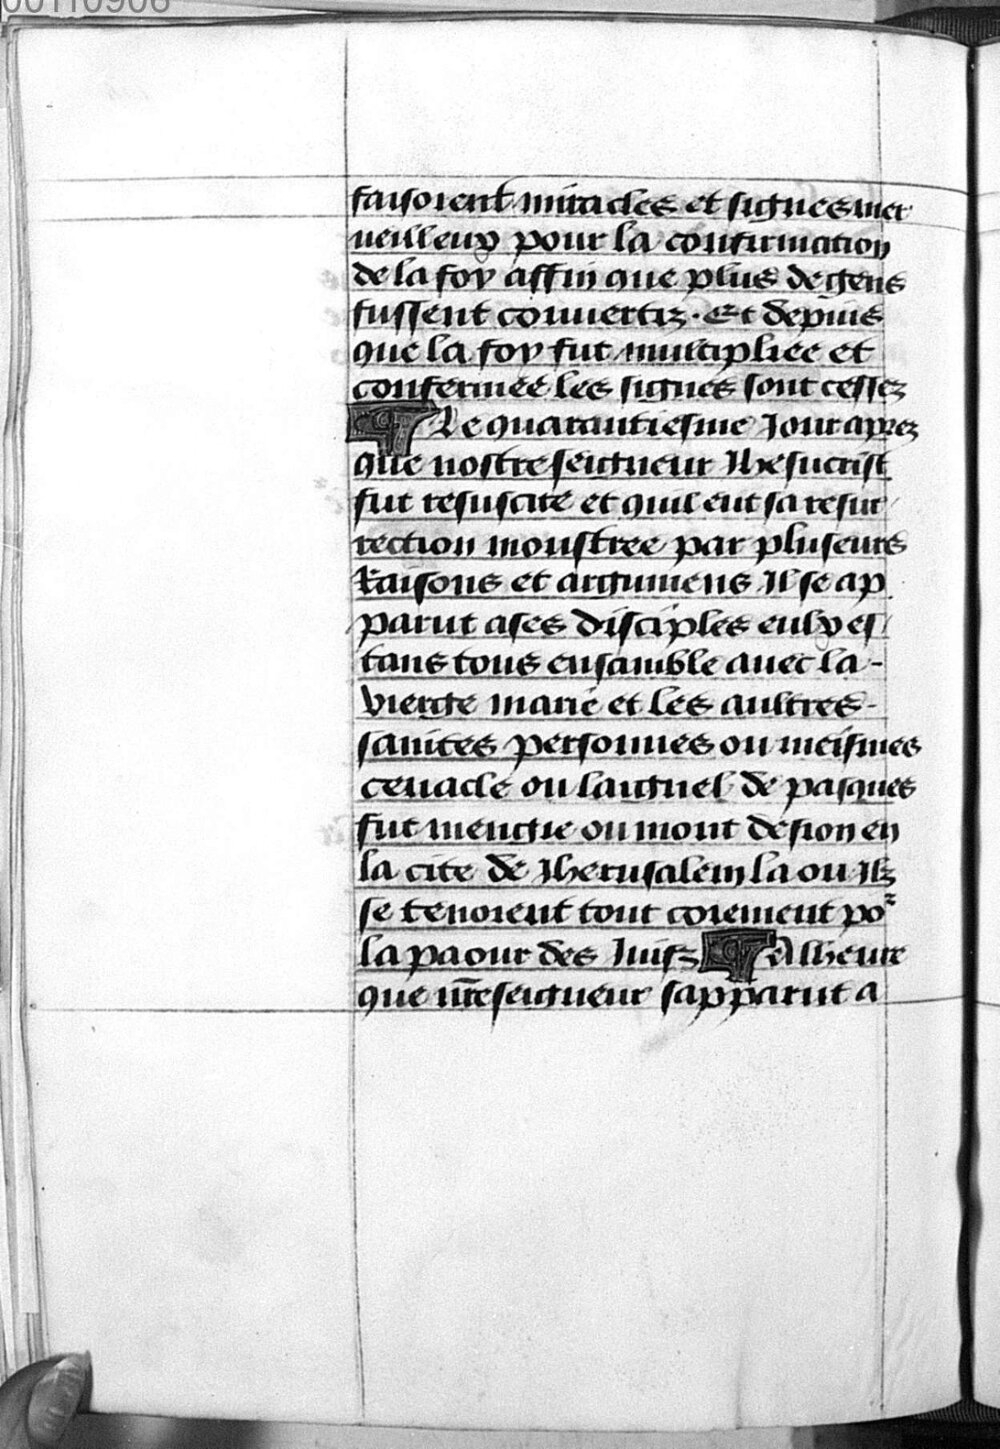 00110906
faisoient miracles et signes mer
ueilleux pour la confirmation
de la foy affin que plus de gens
fussent conuertiz. Et depuis
que la foy fut multipliee et
confermee les signes sont cessez
¶ Le quarantiesme Jour aprez
que nostre seigneur Jhesucrist
fut resuscite et quil eut sa resur
rection monstree par pluseurs
Raisons et argumens Il se ap
parut a ses disciples eulx es
tans tous ensamble auec la -
vierge marie et les aultres -
saintes personnes ou meismes
cenacle ou laignel de pasques
fut mengie ou mont de sion en
la cite de Jherusalem la ou Ilz
se tenoient tout coiement por
la paour des Juifz ¶ A lheure
que nre seigneur sapparut a